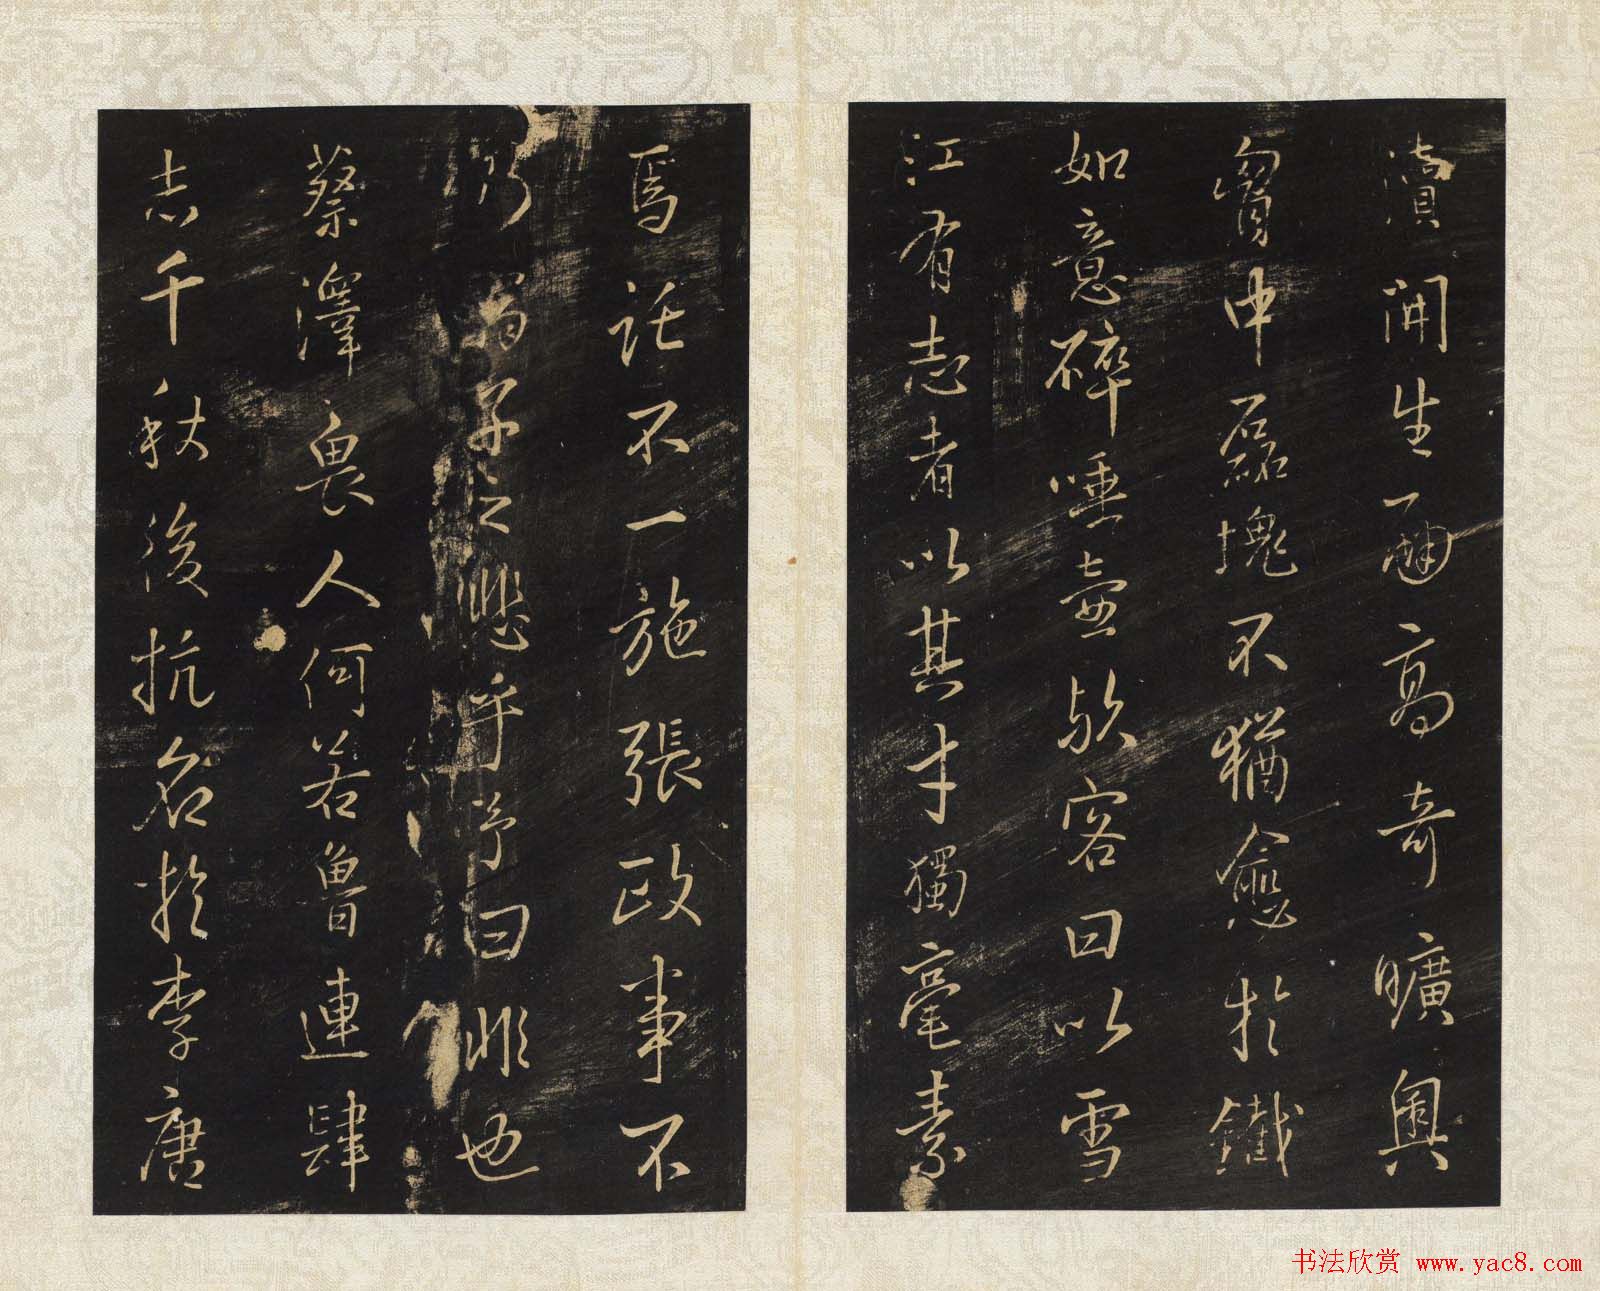 開生面高奇曠奧
胷中磊塊不猶愈於鐵
如意碎唾壺欤客曰以雪
江有志者以其才獨毫素
焉託不一施張政事不
乃子之悲乎予曰非也
蔡澤畏人何若魯連肆
志千秋後抗名於李唐
书法欣赏 www.yac8.com